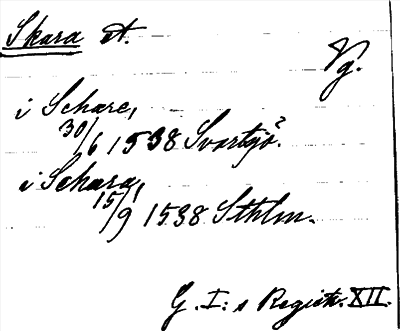 Skara st.
Vg.
i Scharc,
30/6 1538 Svartsjö.
i Schara,
15/9 1538 Sthlm.
G. I:s Registr. XII.